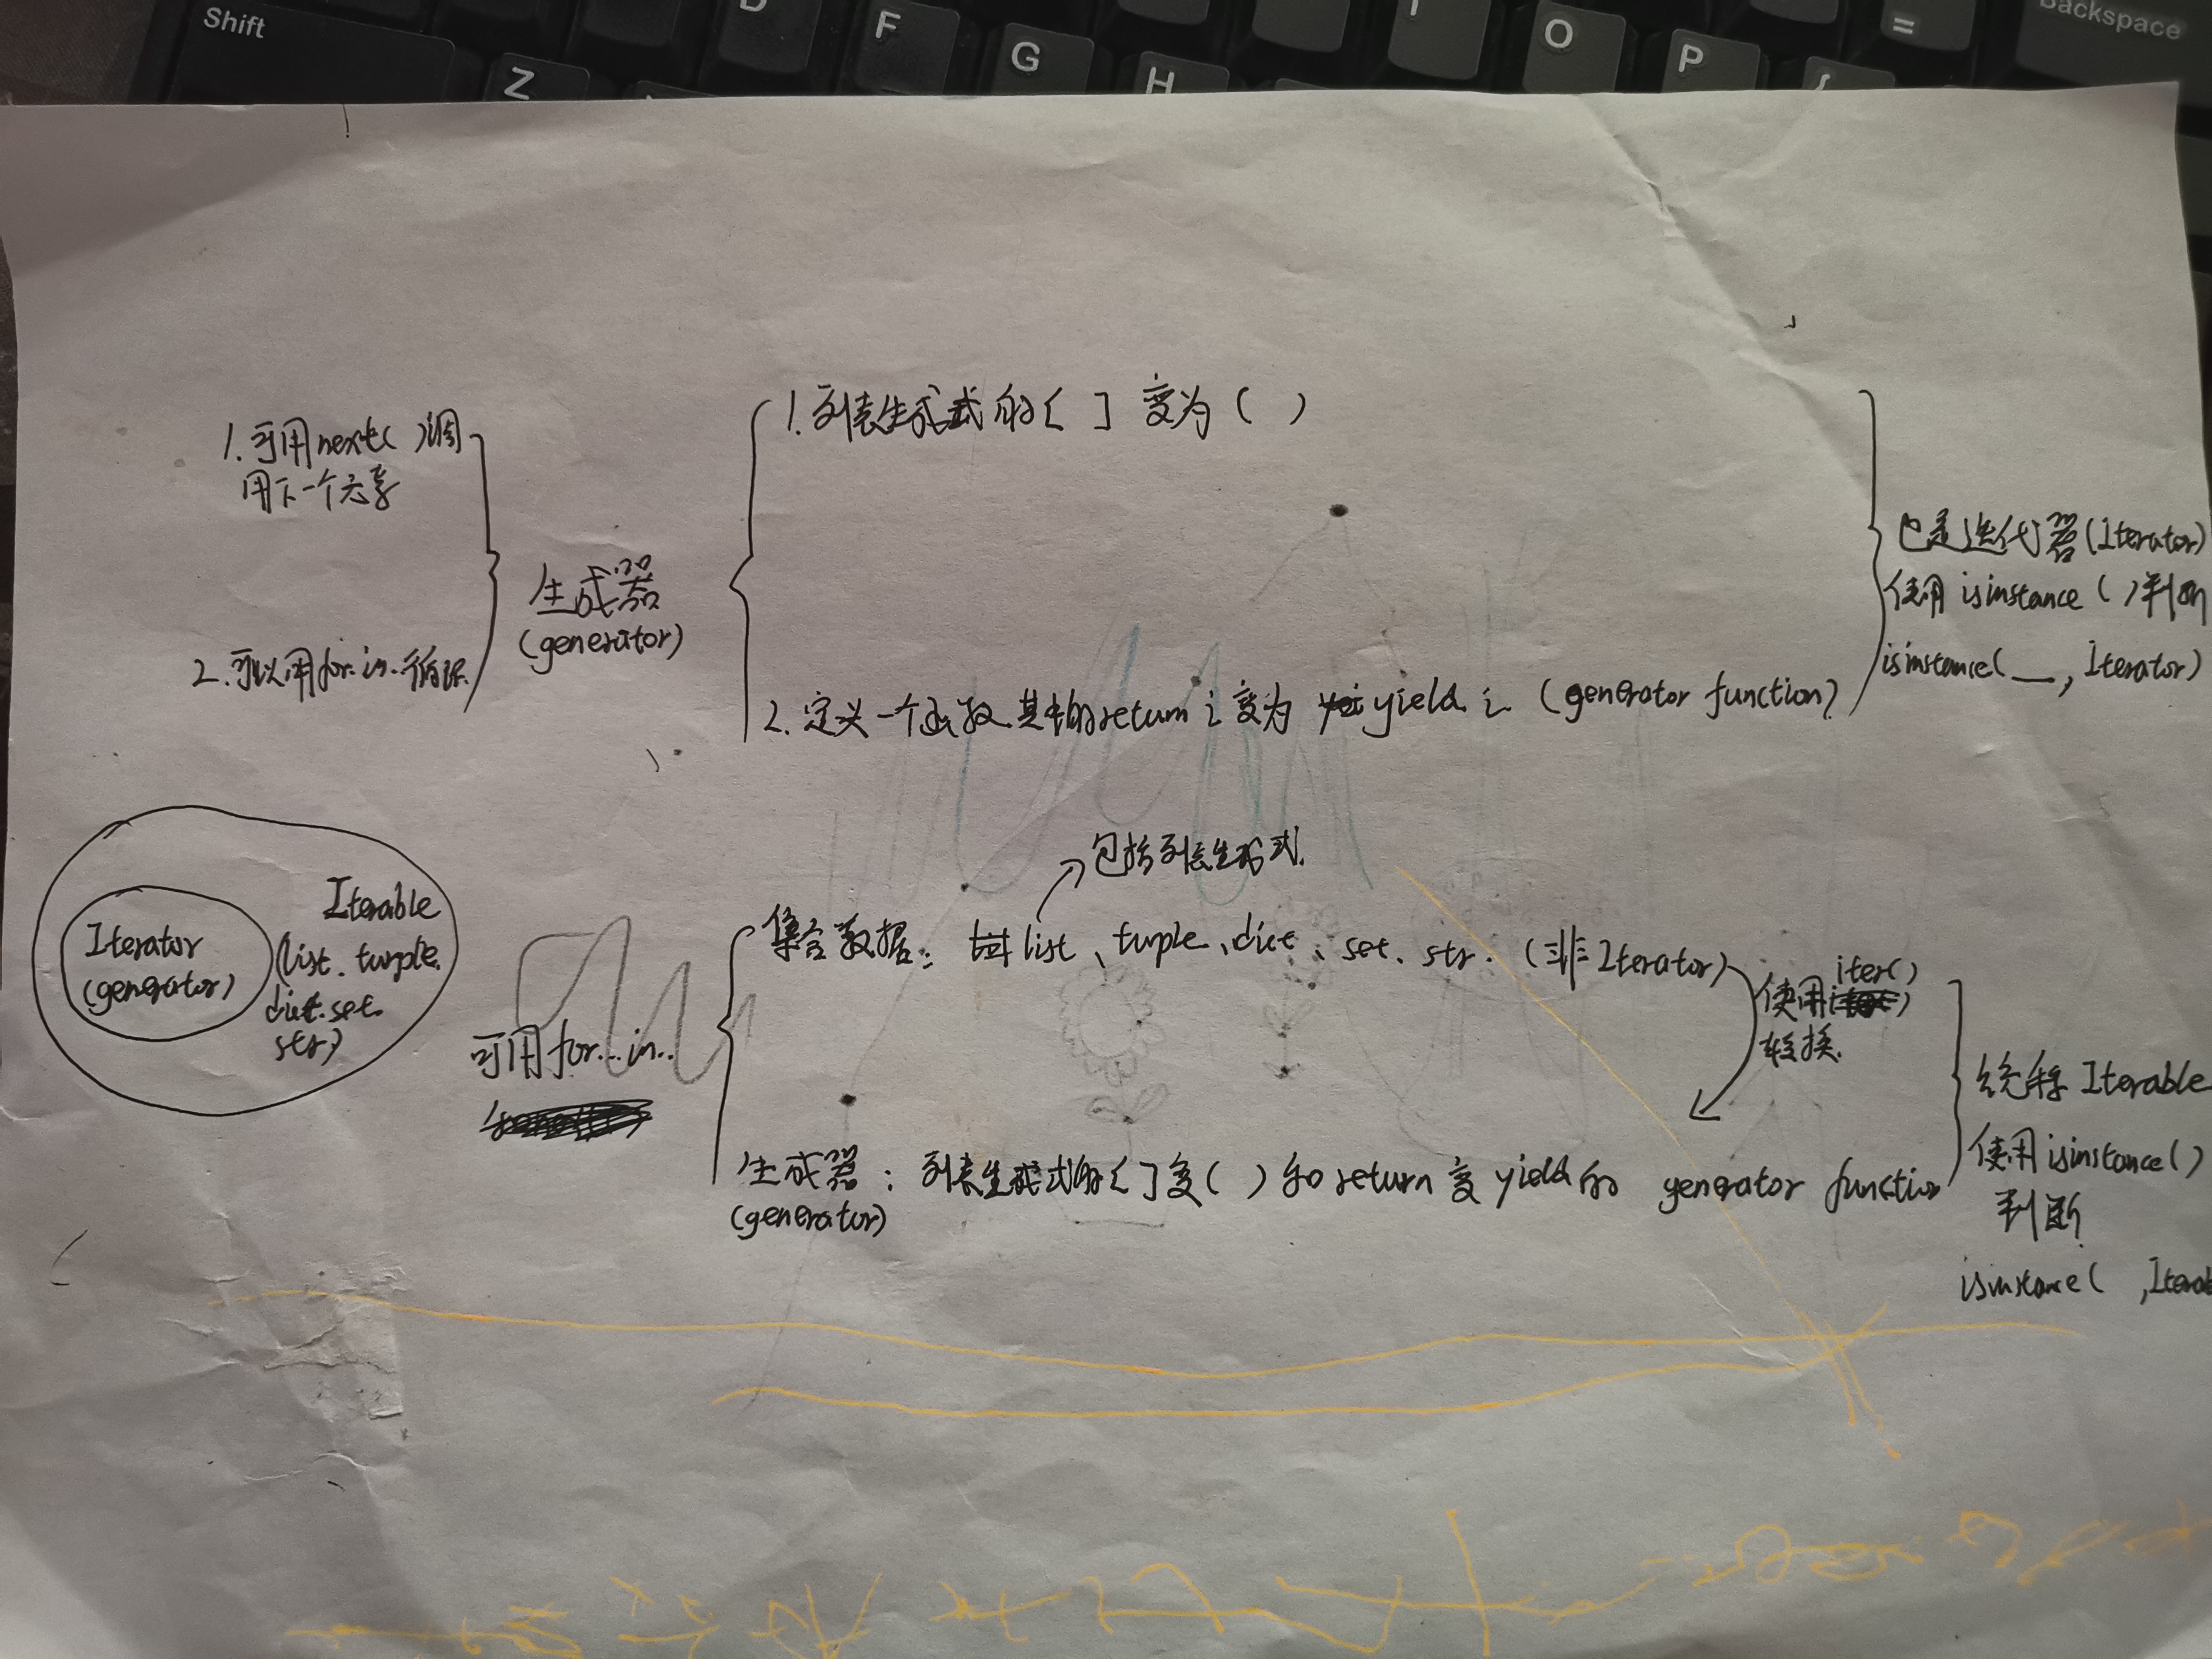 Shift
Z
D
F
G
H
O
P
=
Backspace
1.列表生成式的[ ] 变为( )
1.可用next( )调
用下一个元素
生成器
(generator)
2.可以用for..in..循环
2.定义一个函数其中的return i 变为 yield i (generator function)
也是迭代器(Iterator)
使用isinstance( )判断
isinstance(__, Iterator)
包括列表生成式
Iterable
(list. turple.
dict.set.
str)
Iterator
(generator)
可用for...in..
集合数据: list、turple、dict、set、str.(非Iterator)
使用iter()
转换.
生成器: 列表生成式的[ ]变( )和return变yield的 generator function
(generator)
统称Iterable
使用isinstance()
判断
isinstance( ,Iterab